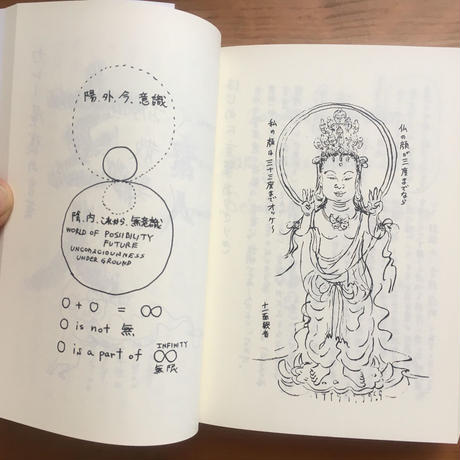 陽、外、今、意識
陰、内、これから、無意識
WORLD OF POSSIBILITY
FUTURE
UNCONSCIOUNNESS
UNDER GROUND
0 + 0 = ∞
0 is not 無
0 is a part of ∞
INFINITY
無限
仏の顔が三度までなら
私の顔は三十三度までオッケ〜
十一面観音